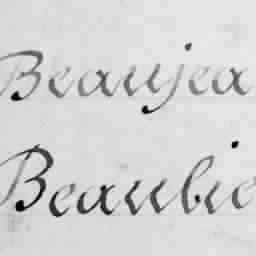 Beaujea
Beaubie